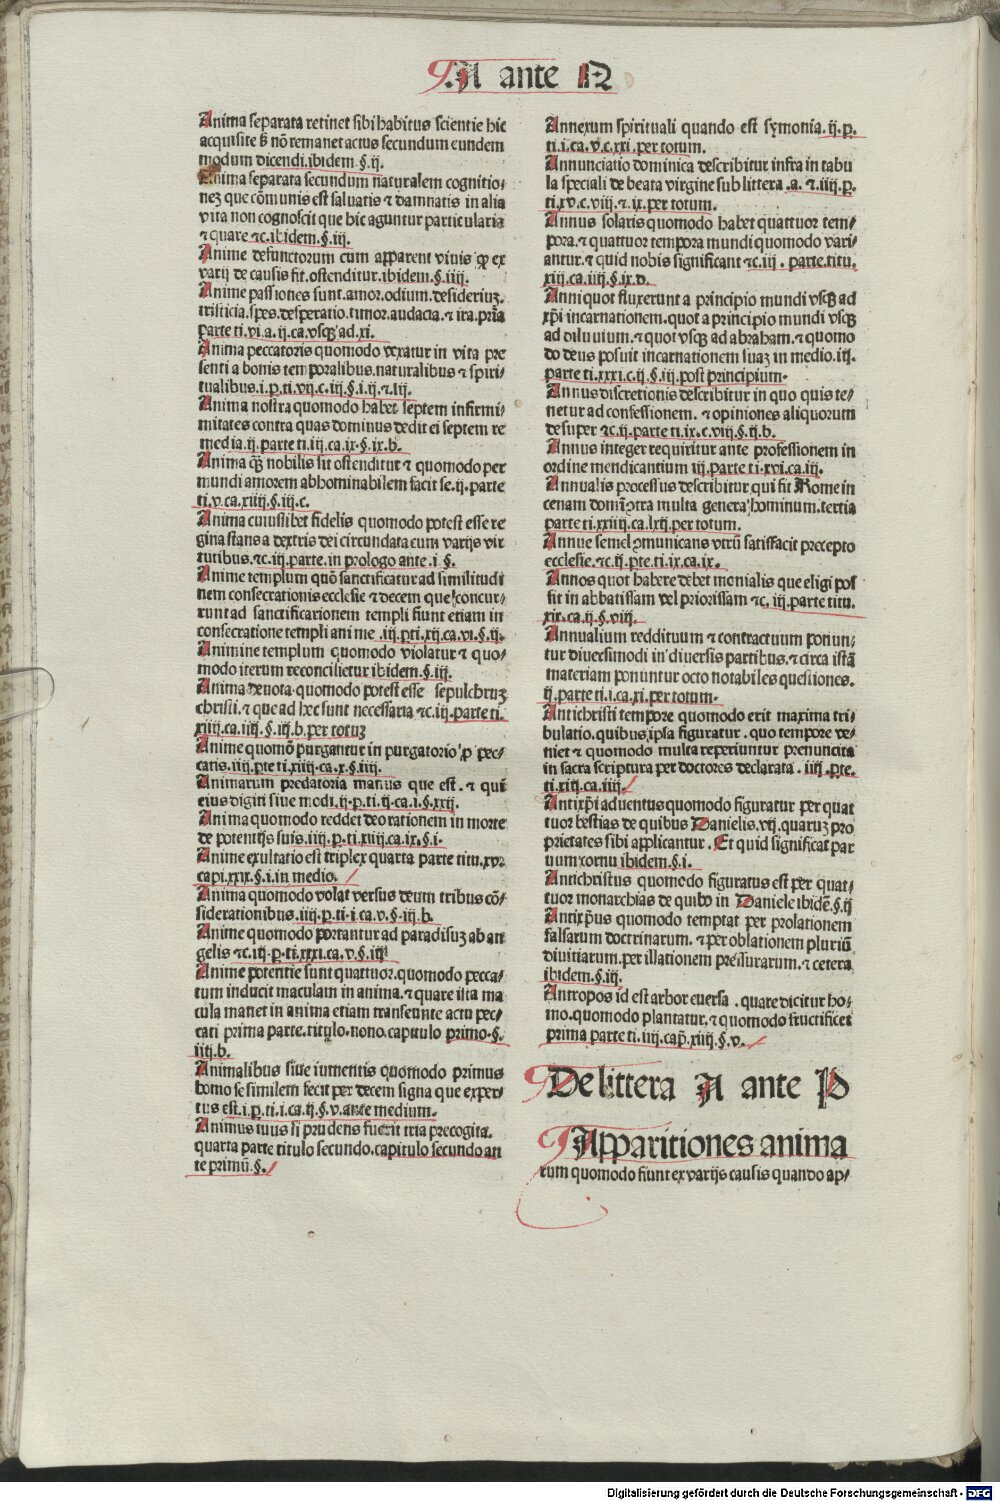 A ante N
Anima separata retinet sibi habitus scientie hic
acquisite sꝫ nō remanet actus secundum eundem
modum dicendi.ibidem.§.ij.
Anima separata secundum naturalem cognitio-
nez que cōmunis est saluatis ⁊ damnatis in alia
vita non cognoscit que hic aguntur particularia
⁊ quare ⁊c.ibidem.§.iij.
Anime defunctorum cum apparent viuis ꝙ ex
varij de causis fit.ostenditur.ibidem.§.iiij.
Anime passiones sunt.amor.odium.desideriuz.
tristicia.spes.desperatio.timor.audacia.⁊ ira.prīa
parte ti.vi.a.ij.ca.vsqꝫ ad.xi.
Anima peccatoris quomodo vexatur in vita pre
senti a bonis temporalibus.naturalibus ⁊ spiri-
tualibus.i.p.ti.vij.c.iij.§.i.ij.⁊.iij.
Anima nostra quomodo habet septem infirmi-
mitates contra quas dominus dedit ei septem re
media.ij.parte ti.iij.ca.ix.§.ix.b.
Anima qꝫ nobilis sit ostenditur ⁊ quomodo per
mundi amorem abhominabilem facit se.ij.parte
ti.v.ca.xiiij.§.iij.c.
Anima cuiuslibet fidelis quomodo potest esse re
gina stans a dextris dei circundata cum varijs vir
tutibus.⁊c.iij.parte.in prologo ante.i.§.
Anime templum quō sanctificatur ad similitudi
nem consecrationis ecclesie ⁊ decem que concur-
runt ad sanctificationem templi fiunt etiam in
consecratione templi anime .iij.pti.xij.ca.vi.§.ij.
Animine templum quomodo violatur ⁊ quo-
modo iterum reconcilietur ibidem.§.iij.
Anima deuota quomodo potest esse sepulchruz
christi.⁊ que ad hec sunt necessaria ⁊c.iij.parte ti.
xiij.ca.iiij.§.iij.b.per totuz
Anime quomō purgantur in purgatorio ꝓ pec-
catis.iiij.pte ti.xiiij.ca.x.§.iiij.
Animarum predatoria manus que est.⁊ qui
eius digiti siue modi.ij.p.ti.ij.ca.i.§.xxij.
Anima quomodo reddet deo rationem in morte
de potentijs suis.iiij.p.ti.xiiij.ca.ix.§.i.
Anime exultatio est triplex quarta parte titu.xv.
capi.xxix.§.i.in medio.
Anima quomodo volat versus deum tribus cō-
siderationibus.iiij.p.ti.i.ca.v.§.iij.b.
Anime quomodo portantur ad paradisuz ab an
gelis ⁊c.iij.p.ti.xxxi.ca.v.§.iiij
Anime potentie sunt quattuor.quomodo pecca-
tum inducit maculam in anima.⁊ quare ista ma
cula manet in anima etiam transeunte actu pec-
cati prima parte.titulo.nono.capitulo primo.§.
iiij.b.
Animalibus siue iumentis quomodo primus
homo se similem fecit per decem signa que exper-
tus est.i.p.ti.i.ca.ij.§.v.ante medium.
Animus tuus si prudens fuerit tria precogita.
quarta parte titulo secundo.capitulo secundo an
te primū.§.
Annexum spirituali quando est symonia.ij.p.
ti.i.ca.v.c.xxi.per totum.
Annunciatio dominica describitur infra in tabu
la speciali de beata virgine sub littera .a. ⁊.iiij.p.
ti.xv.c.viij.⁊.ix.per totum.
Annus solaris quomodo habet quattuor tem-
pora.⁊ quattuor tempora mundi quomodo vari-
antur.⁊ quid nobis significant ⁊c.iij.parte.titu.
xiij.ca.iiij.§.ix.d.
Anni quot fluxerunt a principio mundi vsqꝫ ad
xp̄i incarnationem.quot a principio mundi vsqꝫ
ad diluuium.⁊ quot vsqꝫ ad abraham.⁊ quomo
do deus posuit incarnationem suaz in medio.iij.
parte ti.xxxi.c.ij.§.iij.post principium.
Annus discretionis describitur in quo quis te-
netur ad confessionem. ⁊ opiniones aliquorum
desuper ⁊c.ij.parte ti.ix.c.viij.§.ij.b.
Annus integer requiritur ante professionem in
ordine mendicantium iij.parte ti.xvi.ca.iij.
Annualis processus describitur qui fit Rome in
cenam domī ꝯtra multa genera hominum.tertia
parte ti.xxiiij.ca.lxij.per totum.
Annue semel ꝯmunicans vtrū satisfacit precepto
ecclesie.⁊c.ij.pte.ti.ix.ca.ix.
Annos quot habere debet monialis que eligi pos
sit in abbatissam vel priorissam ⁊c. iij.parte titu.
xix.ca.ij.§.viij.
Annualium reddituum ⁊ contractuum ponun-
tur diuersimodi in diuersis partibus.⁊ circa istā
materiam ponuntur octo notabiles questiones.
ij.parte ti.i.ca.xi.per totum.
Antichristi tempore quomodo erit maxima tri-
bulatio.quibus ipsa figuratur. quo tempore ve-
niet ⁊ quomodo multa reperiuntur prenuncita
in sacra scriptura per doctores declarata . iiij.pte.
ti.xiij.ca.iiij.
Antixp̄i aduentus quomodo figuratur per quat
tuor bestias de quibus Danielis.vij.quaruz pro
prietates sibi applicantur. Et quid significat par
uum cornu ibidem.§.i.
Antichristus quomodo figuratus est per quat-
tuor monarchias de quibo in Daniele ibidē.§.ij
Antixp̄us quomodo temptat per prolationem
falsarum doctrinarum. ⁊ per oblationem pluriū
diuitiarum.per illationem pressurarum.⁊ cetera
ibidem.§.iij.
Antropos id est arbor euersa . quare dicitur ho-
mo.quomodo plantatur.⁊ quomodo fructificet
prima parte ti.iiij.cap̄.xiiij.§.v.
De littera A ante P
Apparitiones anima
rum quomodo fiunt ex varijs causis quando ap-
Digitalisierung gefördert durch die Deutsche Forschungsgemeinschaft - DFG